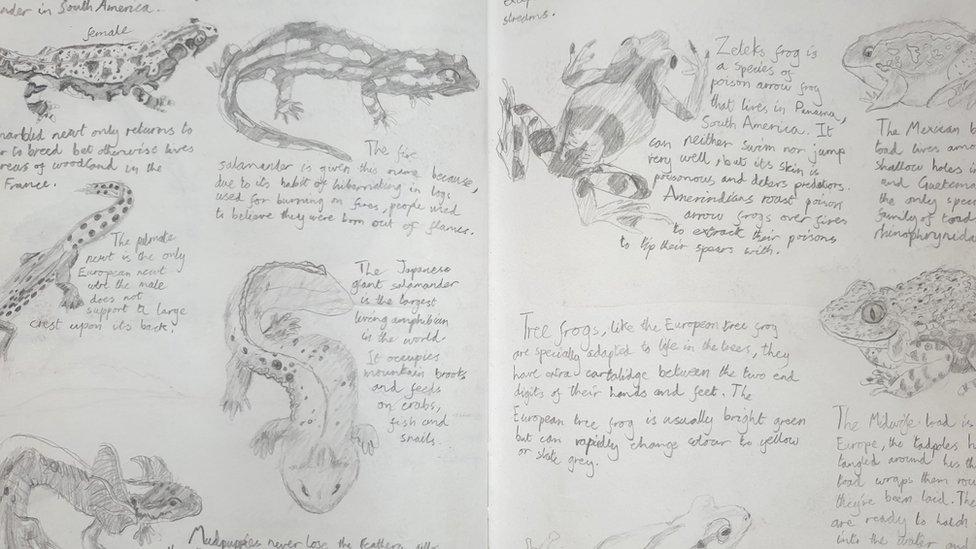 nder in South America.
female
marbled newt only returns to
r to breed but otherwise lives
areas of woodland in the
France.
The fire
salamander is given this name because,
due to its habit of hibernating in logs
used for burning on fires, people used
to believe they were born out of flames.
The palmate
newt is the only
European newt
were the male
does not
support a large
crest upon its back.
The Japanese
giant salamander
is the largest
living amphibian
in the world.
It occupies
mountain brooks
and feeds
on crabs,
fish and
snails.
Mudpuppies never lose the feathery gills
streams.
Zeteks frog is
a species of
poison arrow frog
that lives in Panama,
South America. It
can neither swim nor jump
very well, but its skin is
poisonous, and deters predators.
Amerindians roast poison
arrow frogs over fires
to extract their poisons
to tip their spears with.
Tree frogs, like the European tree frog
are specially adapted to life in the trees, they
have extra cartalidge between the two end
digits of their hands and feet. The
European tree frog is usually bright green
but can rapidly change colour to yellow
or slate grey.
The Mexican
toad lives amo
shallow holes i
and Guatema
the only spec
family of toad
rhinophrynida
The Midwife toad is
Europe, the tadpoles h
tangled around his th
toad wraps them rou
they've been laid. The
are ready to hatch
into the water and